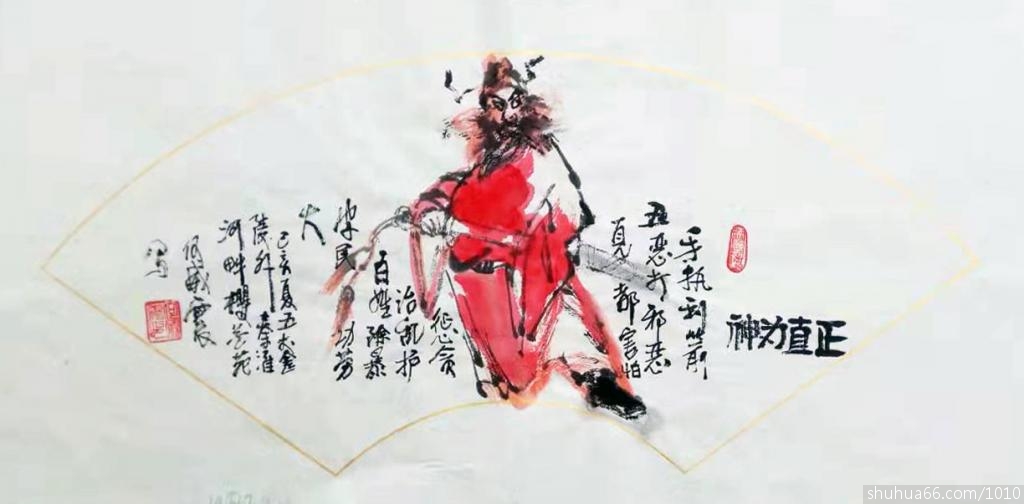 正直为神
手执利剑
丑恶邪恶
见都害怕
惩贪
治乱护
百姓除暴
安民功劳
大
己亥夏五大金
陵外秦淮
河畔樱花苑
何威震
写
shuhua66.com/1010